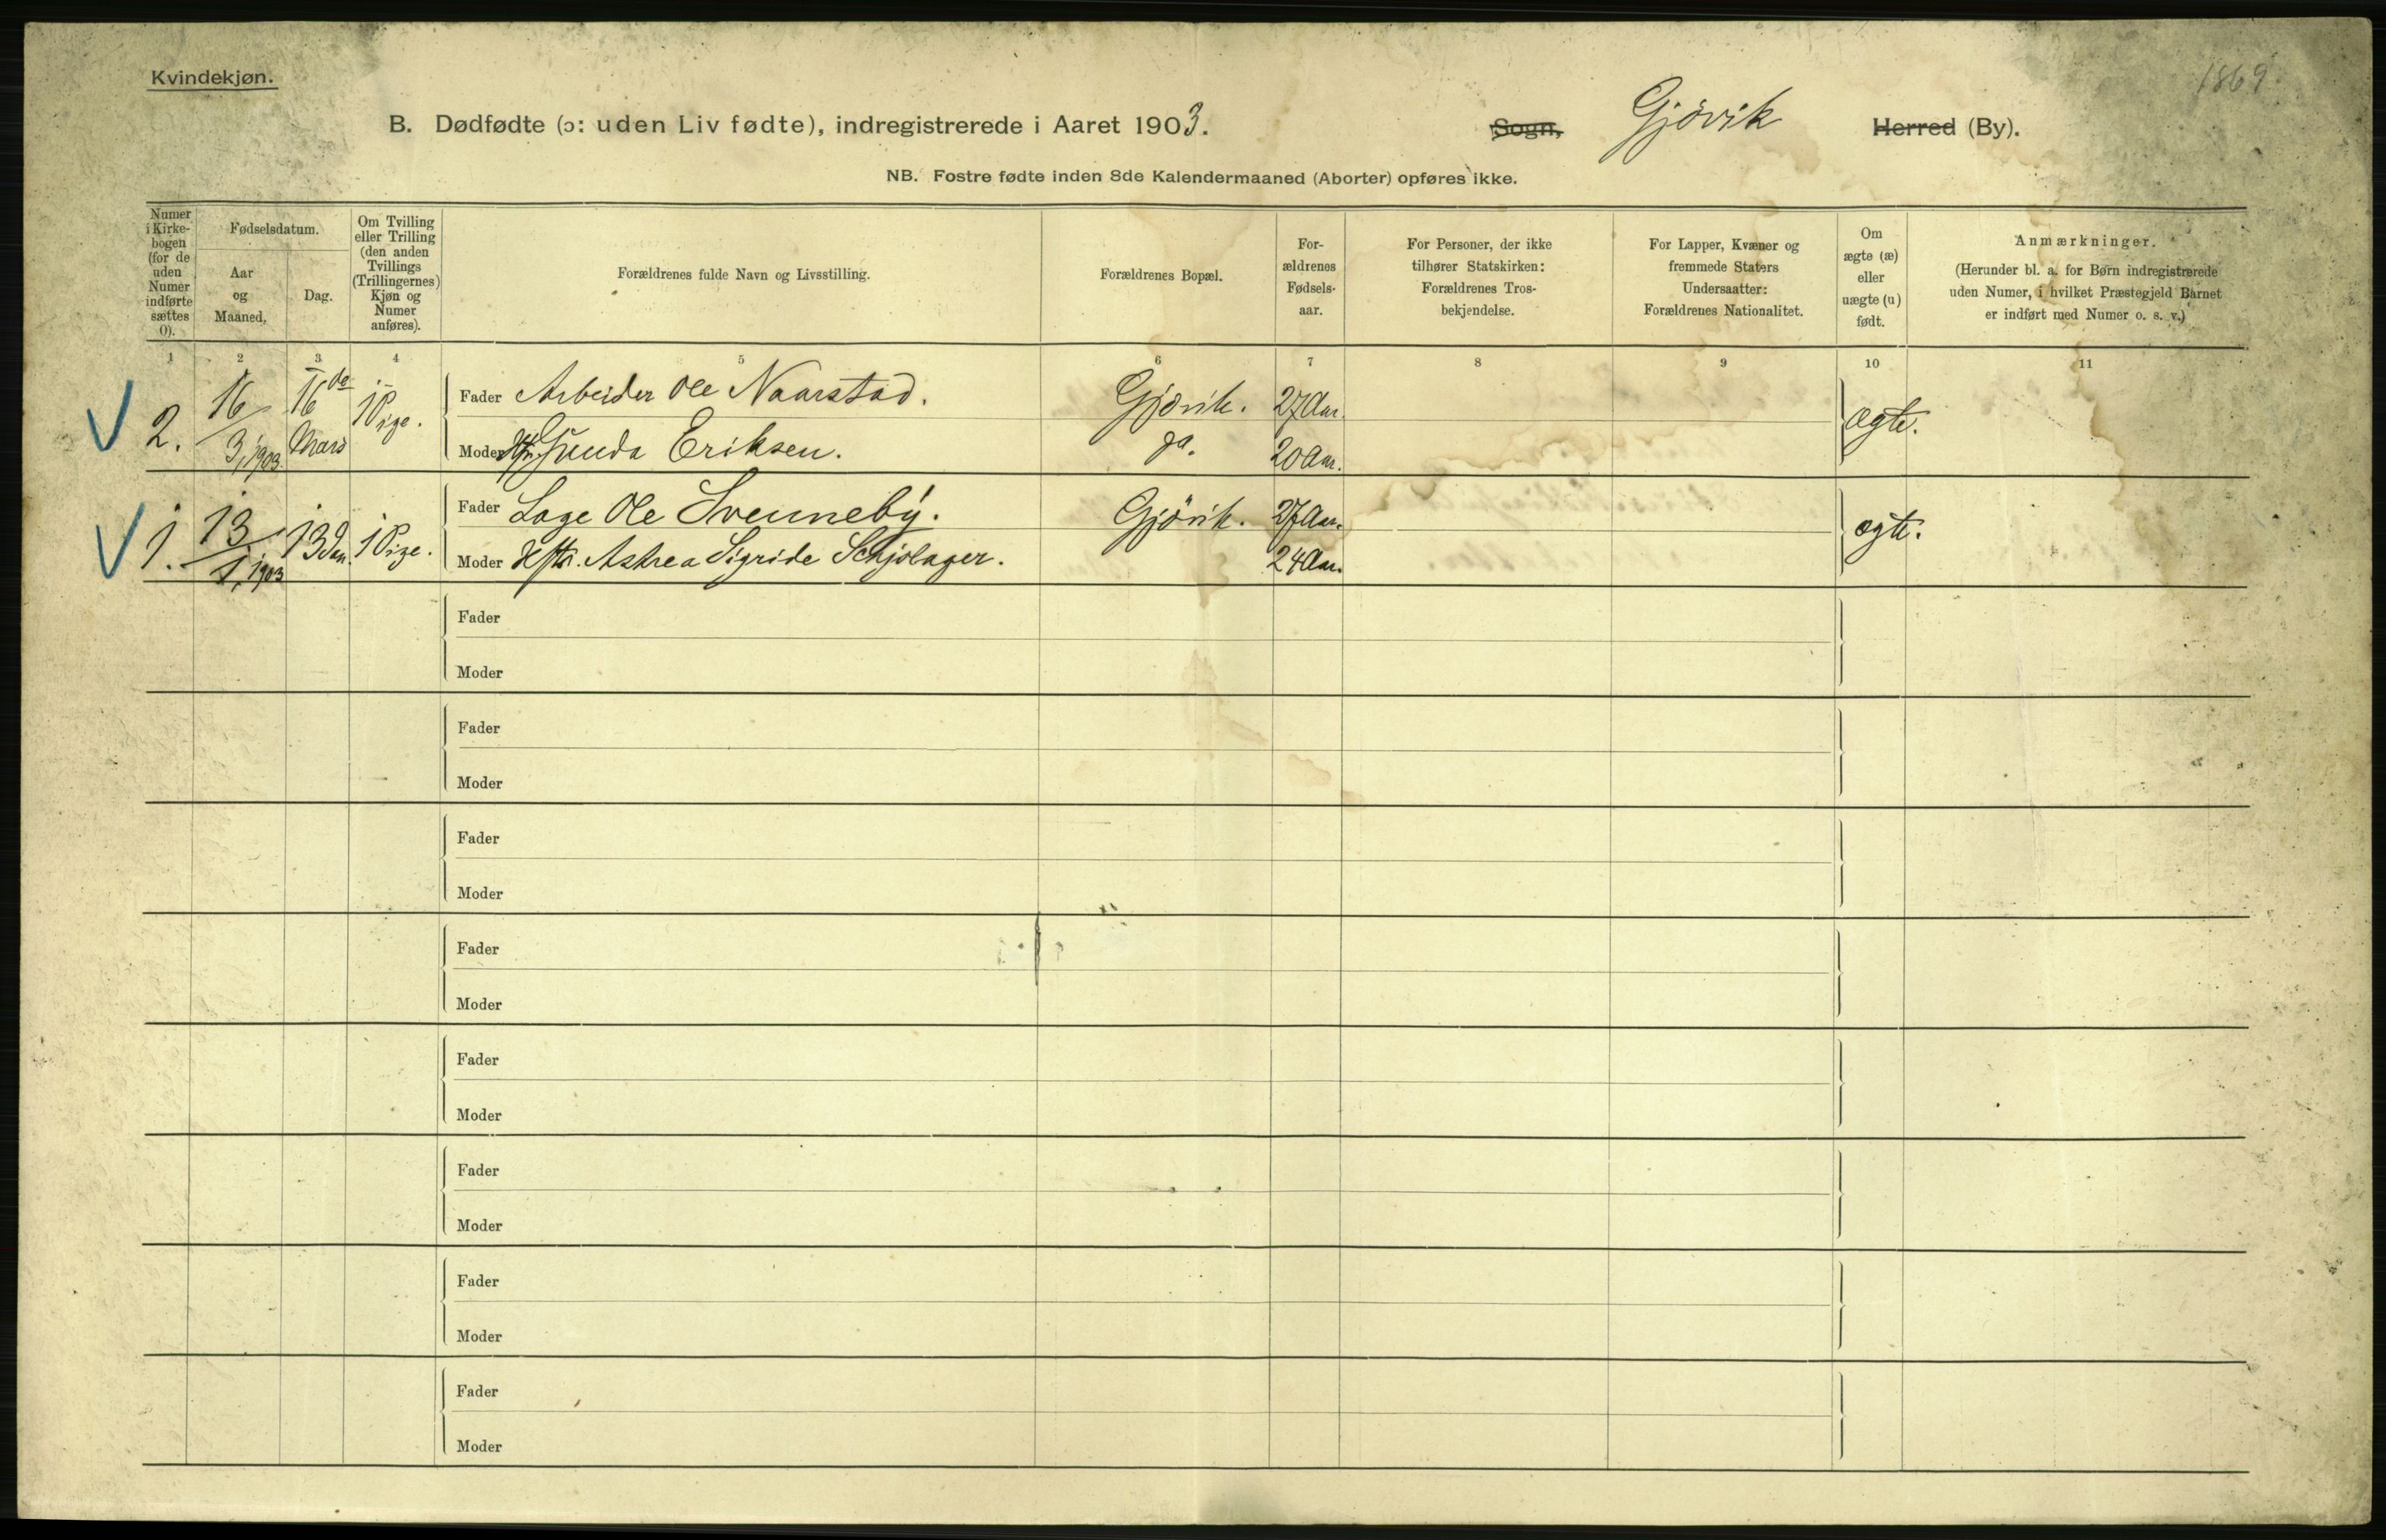 Kvindekjøn.
1869
B. Dødfødte (ɔ: uden Liv fødte), indregistrerede i Aaret 1903.
Sogn, Gjövik Herred (By).
NB. Fostre fødte inden 8de Kalendermaaned (Aborter) opføres ikke.
Numer
i Kirke-
bogen
(for de
uden
Numer
indførte
sættes
0).
Fødselsdatum.
Aar
og
Maaned.
Dag.
Om Tvilling
eller Trilling
(den anden
Tvillings
(Trillingernes)
Kjøn og
Numer
anføres).
Forældrenes fulde Navn og Livsstilling.
Forældrenes Bopæl.
For-
ældrenes
Fødsels-
aar.
For Personer, der ikke
tilhører Statskirken:
Forældrenes Tros-
bekjendelse.
For Lapper, Kvæner og
fremmede Staters
Undersaatter:
Forældrenes Nationalitet.
Om
ægte (æ)
eller
uægte (u)
født.
Anmærkninger.
(Herunder bl. a. for Børn indregistrerede
uden Numer, i hvilket Præstegjeld Barnet
er indført med Numer o. s. v.)
1 2 3 4 5 6 7 8 9 10 11
2. 16/3, 1903. 16de Mars 1 Pige. Fader Arbeider Ole Naarstad. Gjövik. 27 Aar. ægte.
Moder Gunda Eriksen. 20 Aar.
1. 13/1, 1903 13 Jan. 1 Pige. Fader Ole Svenneby. Gjövik. 27 Aar. ægte.
Moder Hstr. Astrea Sigride Schjølager. 24 Aar.
Fader
Moder
Fader
Moder
Fader
Moder
Fader
Moder
Fader
Moder
Fader
Moder
Fader
Moder
Fader
Moder